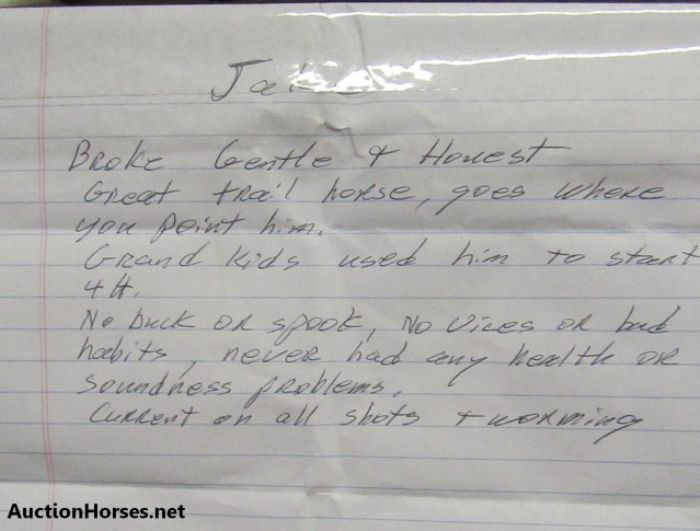 Broke Gentle & Honest
Great trail horse, goes where
you point him.
Grand kids used him to start
4H.
No buck or spook, No Vices or bad
habits, never had any health or
soundness problems.
Current on all shots + worming
AuctionHorses.net